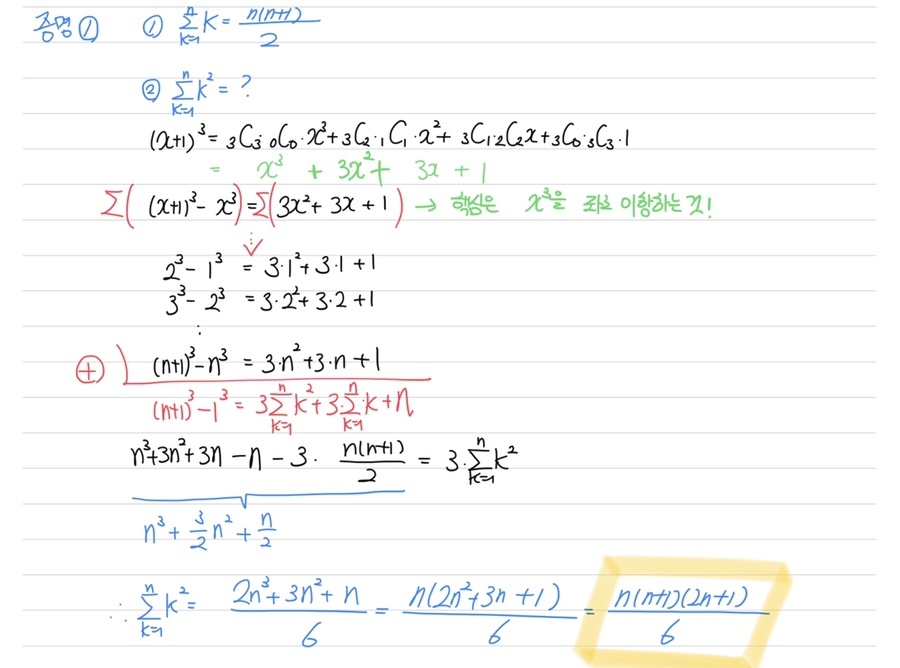 증명① ① \sum_{k=1}^{n} k = \frac{n(n+1)}{2}
② \sum_{k=1}^{n} k^2 = ?
(x+1)^3 = {}_3C_3 \cdot {}_0C_0 \cdot x^3 + {}_3C_2 \cdot {}_1C_1 \cdot x^2 + {}_3C_1 \cdot {}_2C_2 x + {}_3C_0 \cdot {}_3C_3 \cdot 1
= x^3 + 3x^2 + 3x + 1
\sum ( (x+1)^3 - x^3 ) = \sum ( 3x^2 + 3x + 1 ) → 핵심은 x^3을 좌로 이항하는 것!
2^3 - 1^3 = 3 \cdot 1^2 + 3 \cdot 1 + 1
3^3 - 2^3 = 3 \cdot 2^2 + 3 \cdot 2 + 1
⋮
⊕ ) (n+1)^3 - n^3 = 3 \cdot n^2 + 3 \cdot n + 1
(n+1)^3 - 1^3 = 3 \sum_{k=1}^{n} k^2 + 3 \cdot \sum_{k=1}^{n} k + n
n^3 + 3n^2 + 3n - n - 3 \cdot \frac{n(n+1)}{2} = 3 \cdot \sum_{k=1}^{n} k^2
n^3 + \frac{3}{2} n^2 + \frac{n}{2}
∴ \sum_{k=1}^{n} k^2 = \frac{2n^3 + 3n^2 + n}{6} = \frac{n(2n^2 + 3n + 1)}{6} = \frac{n(n+1)(2n+1)}{6}